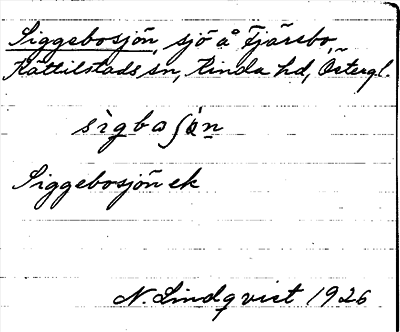 Siggebosjön, sjö å Fjärebo,
Kättilstads sn, Kinda hd, Östergl.
sìgbaʃön
Siggebosjön ek
N. Lindqvist 1926